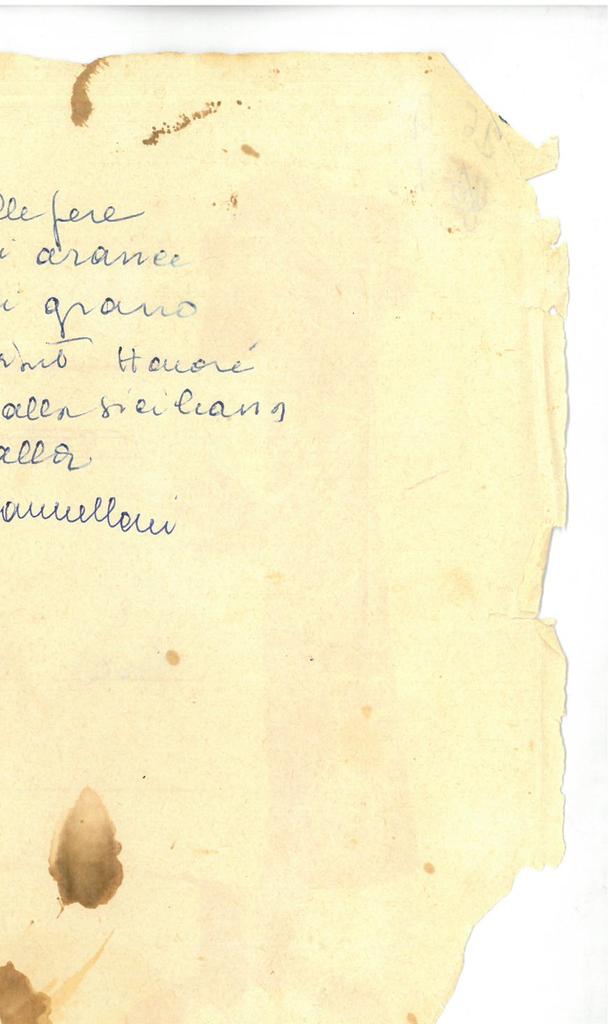 lle pere
i arance
i grano
Honoré
alla siciliana
alla
annelloni